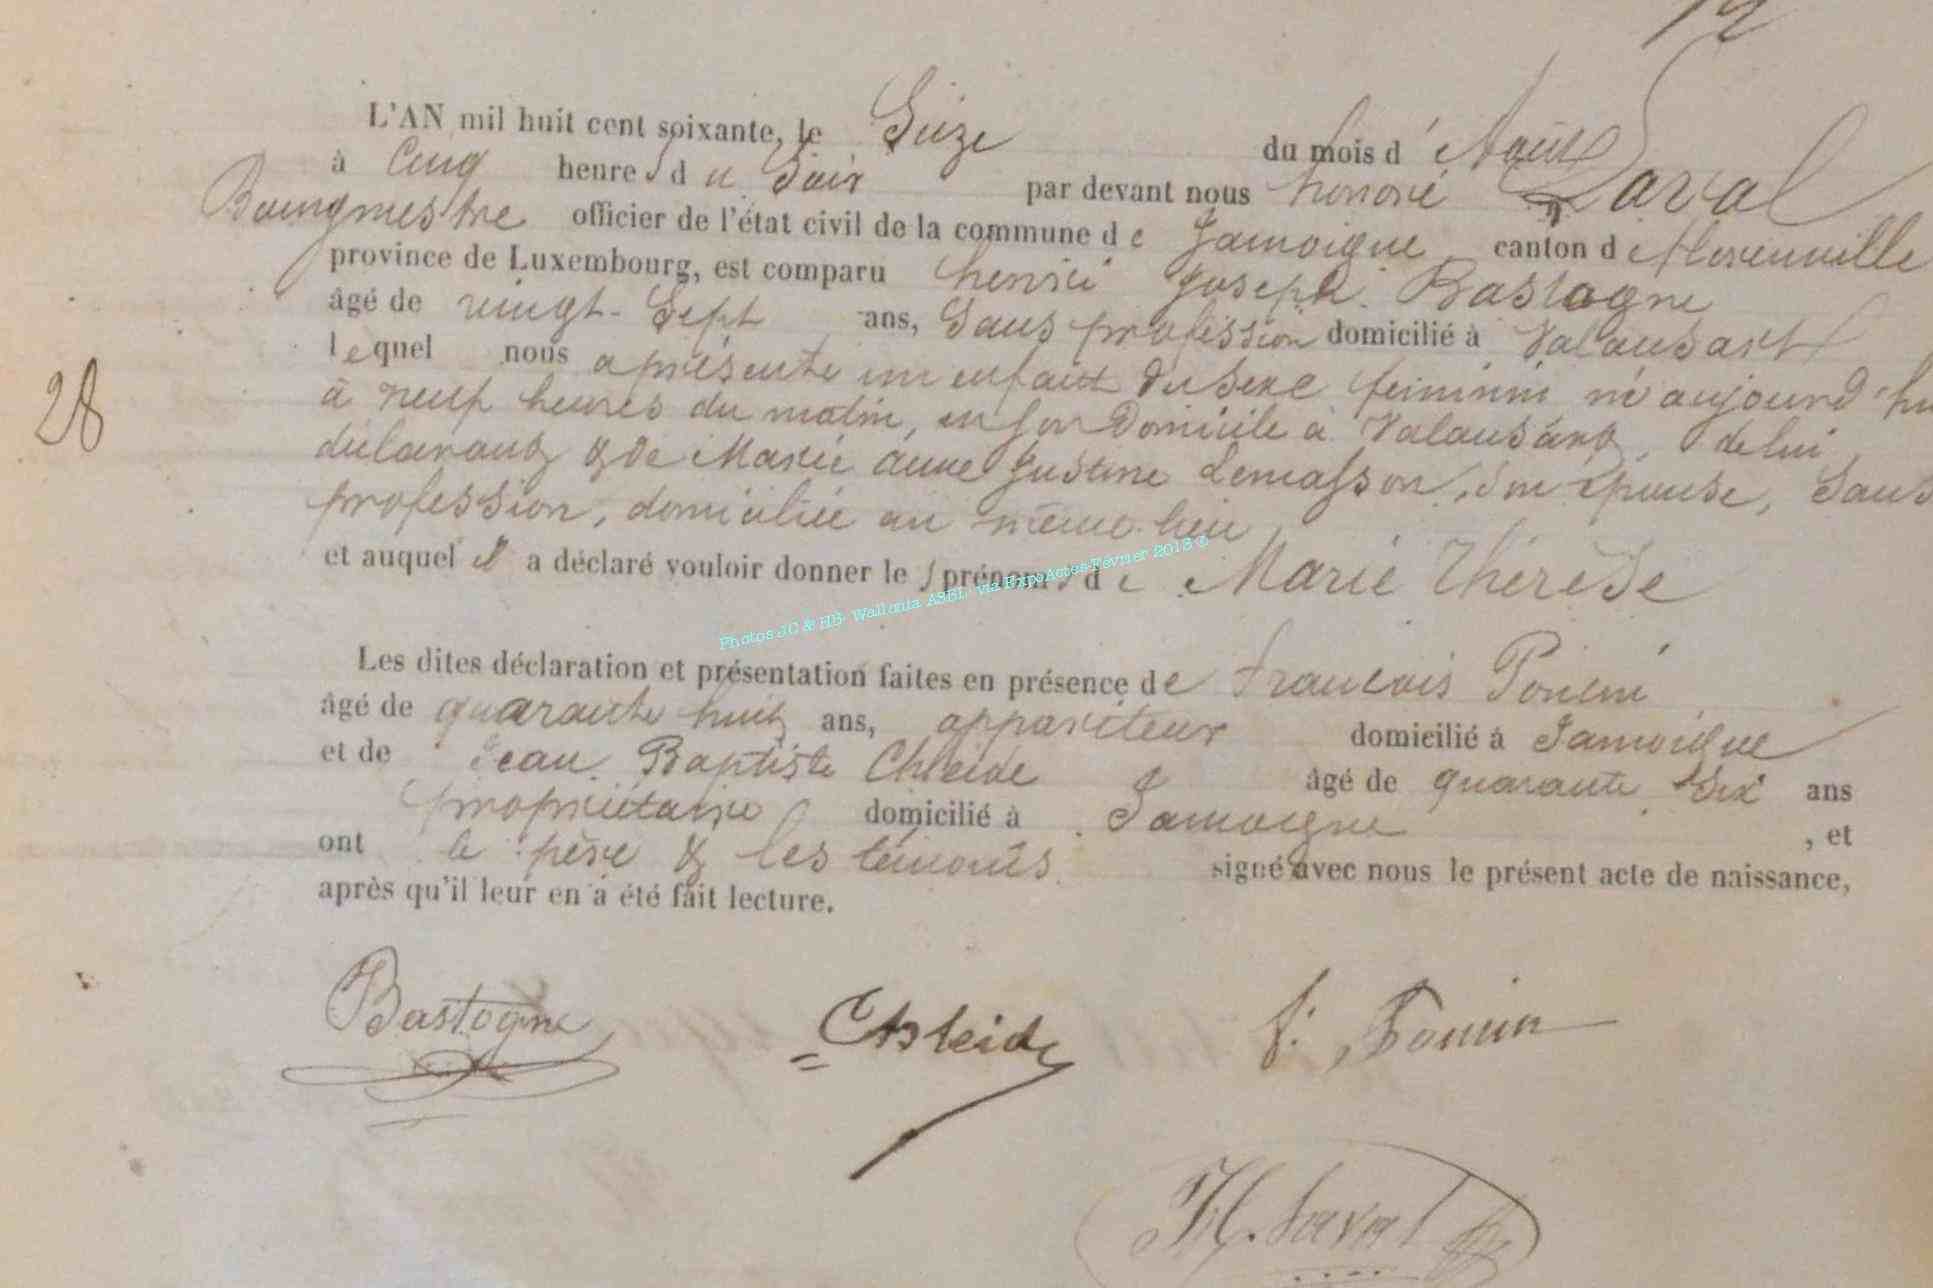 12
L'AN mil huit cent soixante, le Seize du mois d'Août
à Cinq heures du Soir par devant nous honoré Laval
Bourgmestre officier de l'état civil de la commune de Jamoigne canton d
province de Luxembourg, est comparu henri Joseph Bastogne
âgé de vingt-Sept ans, Sans profession domicilié à Valansart
lequel nous a présenté un enfant du Sexe féminin né aujourd'hu
à neuf heures du matin, en Son Domicile à Valansart, de lui
déclarant & de Marie anne Justine Lemasson, Son épouse, Sans
profession, domiciliée au même lieu
et auquel il a déclaré vouloir donner les prénoms de Marie Thérèse
Photos JC & HB- Wallonia ASBL- via ExpoActes-Février 2018 ©
Les dites déclaration et présentation faites en présence de francois
âgé de quarante huit ans, appariteur domicilié à Jamoigne
et de Jean Baptiste Chleide âgé de quarante Six ans
propriétaire domicilié à Jamoigne, et
ont le père & les témoins signé avec nous le présent acte de naissance,
après qu'il leur en a été fait lecture.
28
Bastogne Chleide f.
H. Laval